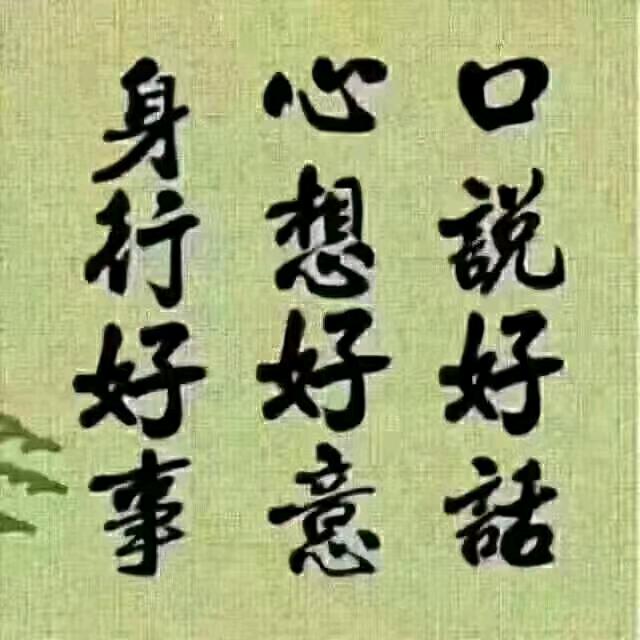 口說好話
心想好意
身行好事